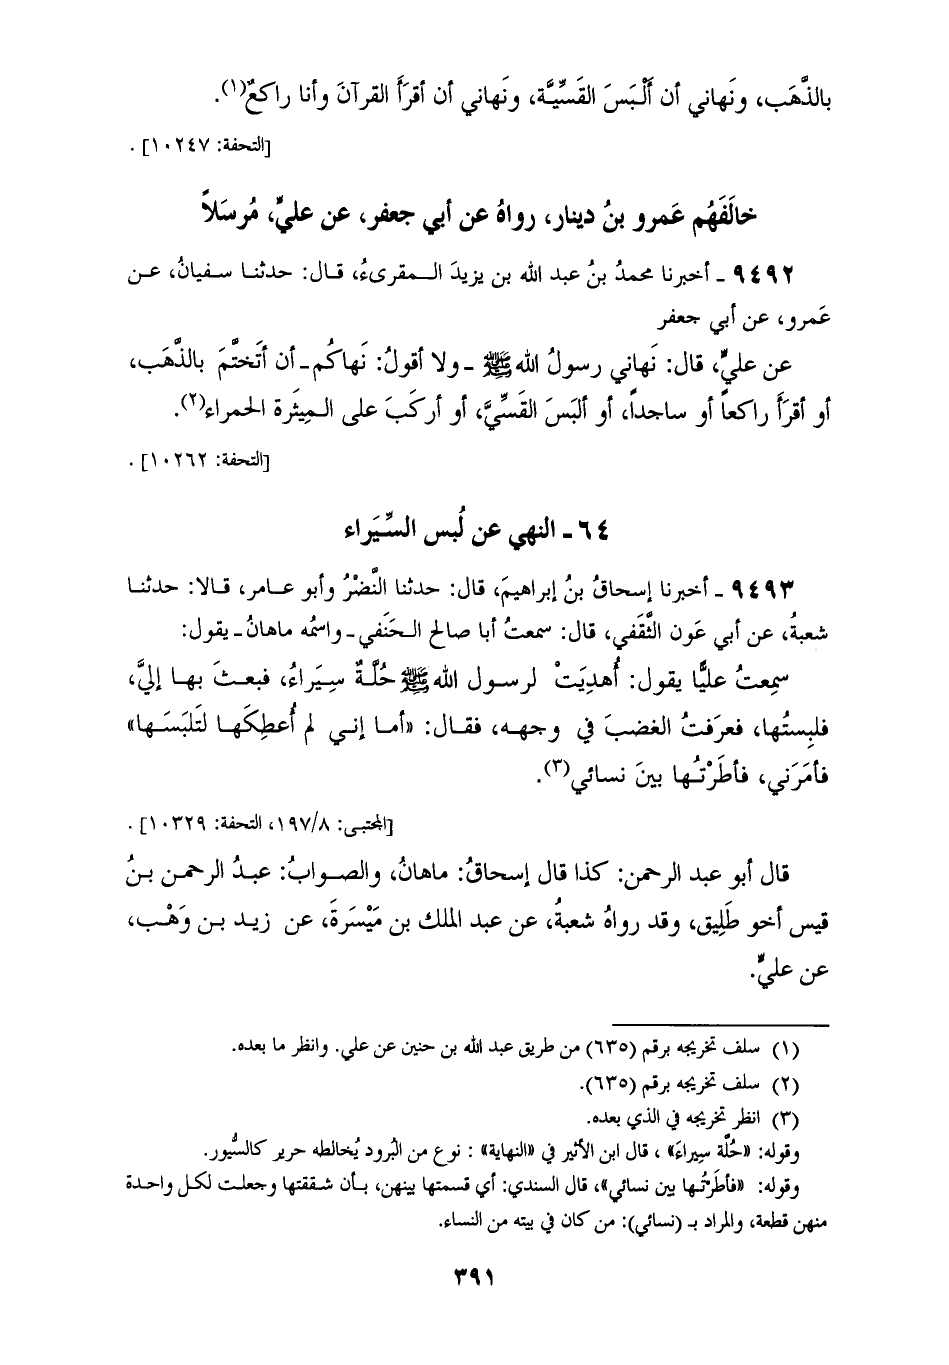 بالذَّهَب، ونَهاني أن أَلْبَسَ القَسِّيَّة، ونَهاني أن أقرَأَ القرآنَ وأنا راكعٌ(١).
[التحفة: ١٠٢٤٧] .
خالَفَهُم عَمرو بنُ دينار، رواهُ عن أبي جعفر، عن عليٍّ، مُرسَلاً
٩٤٩٢ ـ أخبرنا محمدُ بنُ عبد الله بن يزيدَ الـمقرىءُ، قـال: حدثنـا سـفيانُ، عـن
عَمرو، عن أبي جعفر
عن عليٍّ، قال: نَهاني رسولُ الله ﷺ ـ ولا أقولُ: نَهاكُم ـ أن أتَختَّمَ بالذَّهَب،
أو أقرَأَ راكعاً أو ساجداً، أو ألبَسَ القَسِّيَّ، أو أركَبَ على الـمِيثَرة الحمراء(٢).
[التحفة: ١٠٢٦٢] .
٦٤ ـ النهي عن لُبس السِّيَراء
٩٤٩٣ ـ أخبرنا إسحاقُ بنُ إبراهيمَ، قال: حدثنا النَّضْرُ وأبو عـامر، قـالا: حدثنـا
شعبةُ، عن أبي عَون الثَّقَفي، قال: سمعتُ أبا صالح الـحَنَفي ـ واسمُه ماهانُ ـ يقول:
سمِعتُ عليًّا يقول: أُهدِيَتْ لرسـول الله ﷺ حُلَّةٌ سِيَراءُ، فبعـثَ بهـا إليَّ،
فلبِستُها، فعرَفتُ الغضبَ في وجهـه، فقـال: «أمـا إنـي لم أُعطِكَهـا لتَلبَسَـها»
فأمَرَني، فأطَرْتُـها بينَ نسائي(٣).
[المجتبى: ١٩٧/٨، التحفة: ١٠٣٢٩] .
قال أبو عبد الرحمن: كذا قال إسحاقُ: ماهانُ، والصـوابُ: عبـدُ الرحمـن بـنُ
قيس أخو طَلِيق، وقد رواهُ شعبةُ، عن عبد الملك بن مَيْسَرةَ، عن زيـد بـن وَهْـب،
عن عليٍّ.
(١) سلف تخريجه برقم (٦٣٥) من طريق عبد الله بن حنين عن علي. وانظر ما بعده.
(٢) سلف تخريجه برقم (٦٣٥).
(٣) انظر تخريجه في الذي بعده.
وقوله: «حُلَّة سِيراءَ» ، قال ابن الأثير في «النهاية» : نوع من البُرود يُخالطه حرير كالسُّيور.
وقوله: «فأطَرتُـها بين نسائي»، قال السندي: أي قسمتها بينهن، بـأن شـققتها وجعلـت لكـل واحـدة
منهن قطعة، والمراد بـ (نسائي): من كان في بيته من النساء.
٣٩١